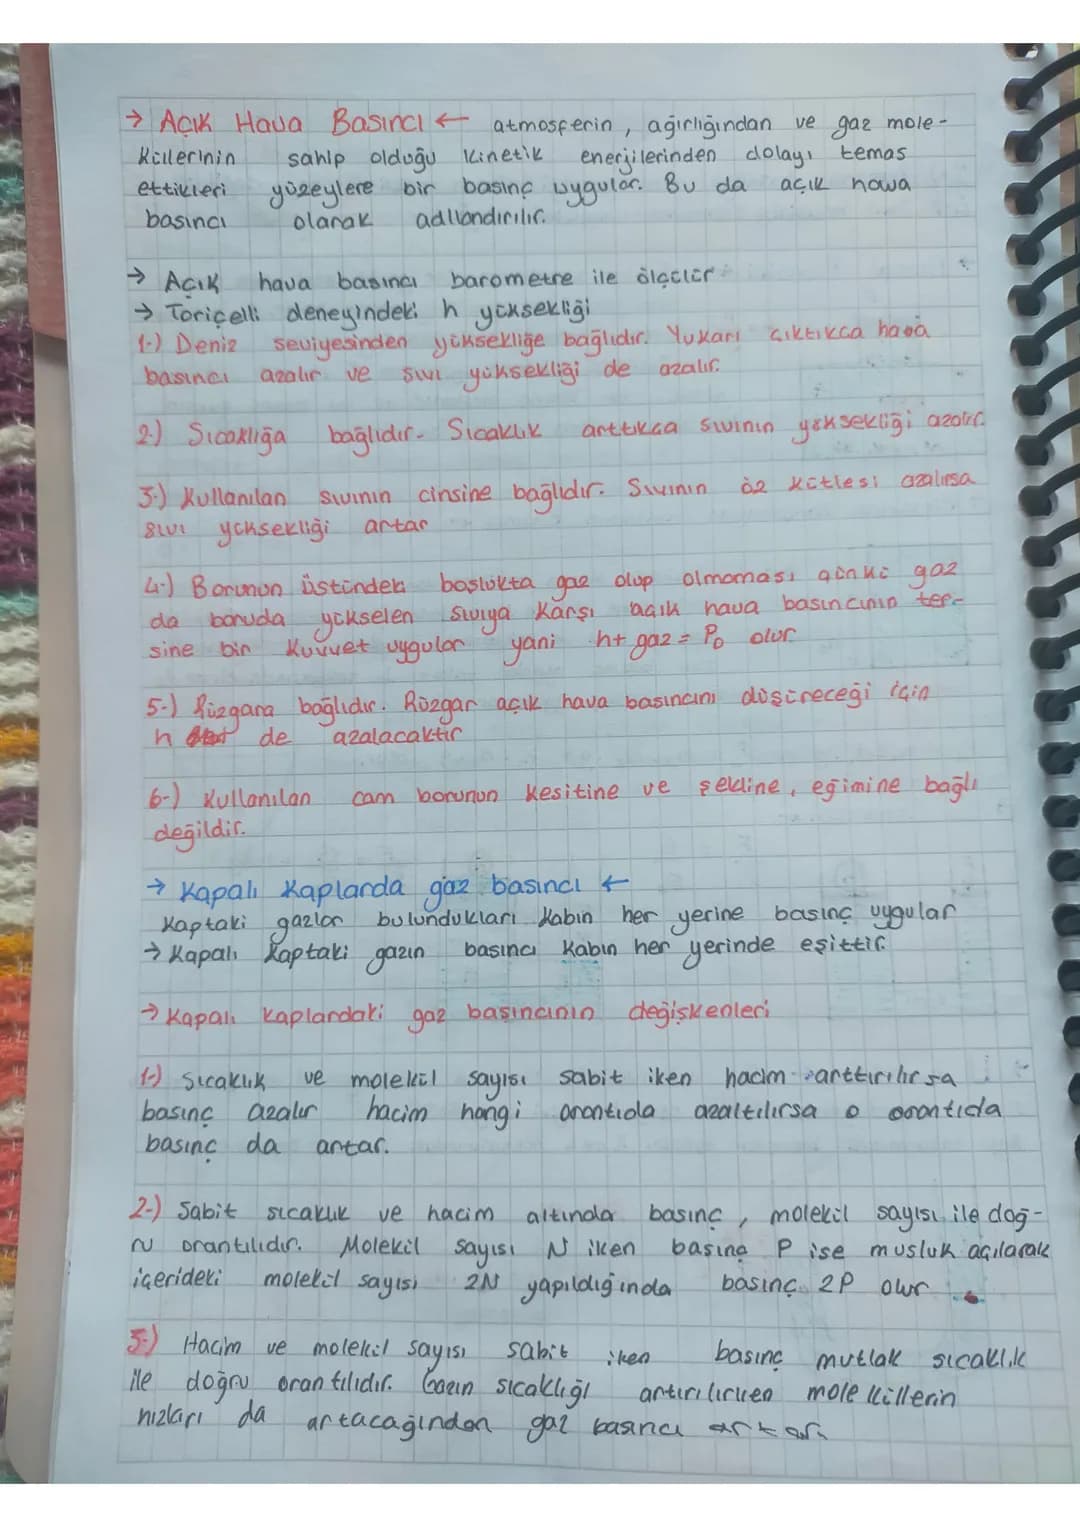 → Açık Hava Basıncı ← atmosferin, ağırlığından ve gaz mole-
küllerinin sahip olduğu kinetik enerjilerinden dolayı temas
ettikleri yüzeylere bir basınç uygular. Bu da açık hava
basıncı olarak adlandırılır.
→ Açık hava basıncı barometre ile ölçülür
→ Toriçelli deneyindeki h yüksekliği
1-) Deniz seviyesinden yüksekliğe bağlıdır. Yukarı çıktıkca hava
basıncı azalır ve sıvı yüksekliği de azalır.
2-) Sıcaklığa bağlıdır. Sıcaklık arttıkca sıvının yüksekliği azalır.
3-) Kullanılan sıvının cinsine bağlıdır. Sıvının öz kütlesi azalırsa
sıvı yüksekliği artar
4-) Borunun üstündeki boşlukta gaz olup olmaması çünkü gaz
da boruda yükselen sıvıya karşı açık hava basıncının ter-
sine bir kuvvet uygular yani h+ gaz = P₀ olur
5-) Rüzgara bağlıdır. Rüzgar açık hava basıncını düşüreceği için
h de azalacaktır
6-) Kullanılan cam borunun kesitine ve şekline, eğimine bağlı
değildir.
→ Kapalı Kaplarda gaz basıncı ←
Kaptaki gazlar bulundukları kabın her yerine basınç uygular
→ Kapalı kaptaki gazın basıncı kabın her yerinde eşittir.
→ Kapalı kaplardaki gaz basıncının değişkenleri
1-) Sıcaklık ve molekül sayısı sabit iken hacim arttırılırsa
basınç azalır hacim hangi orantıda azaltılırsa o orantıda
basınç da artar.
2-) Sabit sıcaklık ve hacim altında basınç, molekül sayısı ile doğ-
ru orantılıdır. Molekül sayısı N iken basınç P ise musluk açılarak
içerideki molekül sayısı 2N yapıldığında basınç 2P olur
3-) Hacim ve molekül sayısı sabit iken basınç mutlak sıcaklık
ile doğru orantılıdır. Gazın sıcaklığı artırılırken moleküllerin
hızları da artacağından gaz basıncı artar.